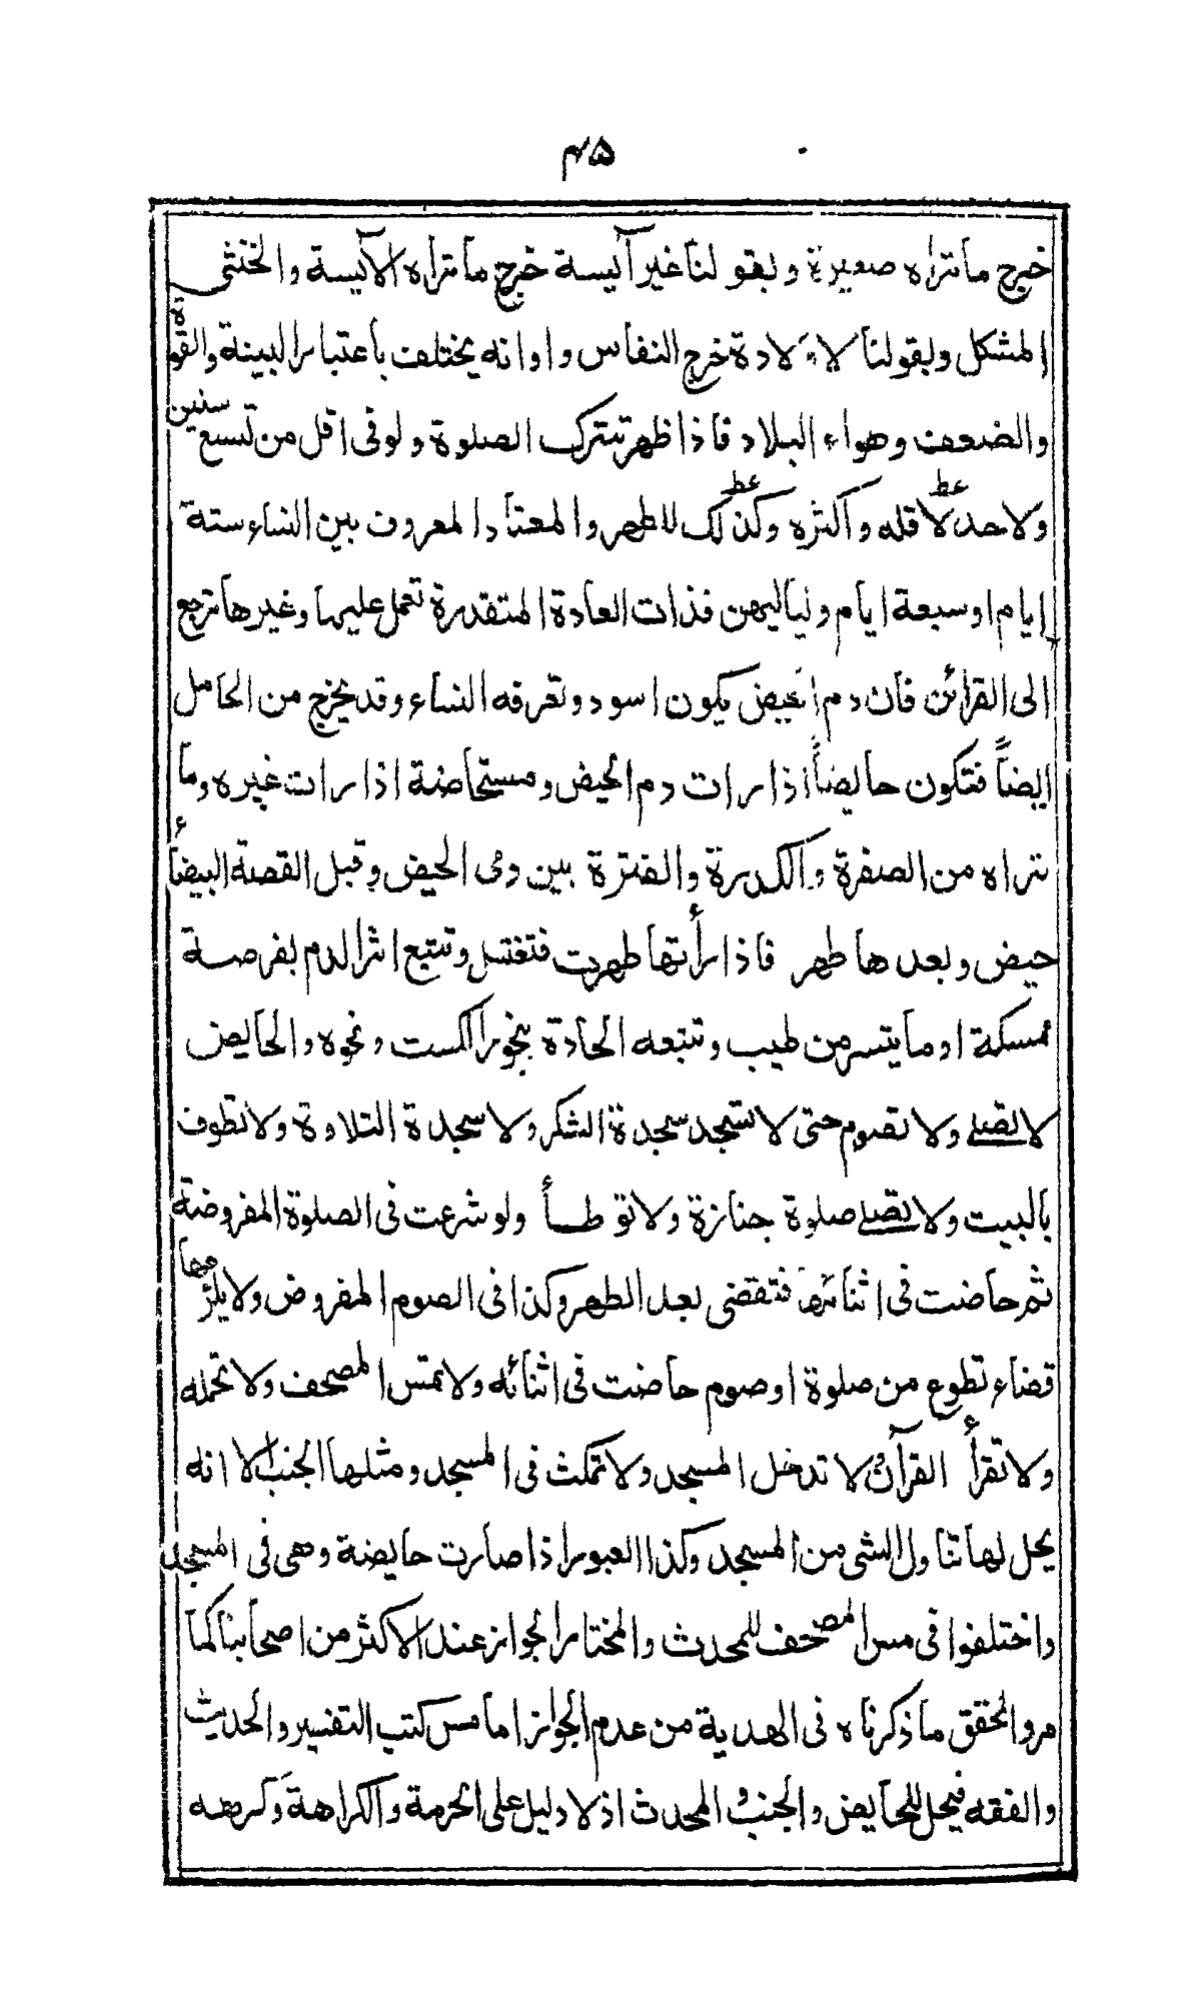 ۴۵
خرج ما تراه صغيرة و بقولنا غير آئيسة خرج ما تراه الآئيسة والخنثى
المشكل وبقولنا لا ولادة خرج النفاس واوانه يختلف باعتبار البينة والقوة
والضعف وهواء البلاد فاذا ظهر تترك الصلوة ولو فى اقل من تسع سنين
ولا حد لاقله واكثره وكذلك للطهر والمعتاد المعروف بين النساء ستة
ايام او سبعة ايام ولياليهن فذات العادة المتقدمة تعمل عليها وغيرها ترجع
الى القرائن فان دم الحيض يكون اسود وتعرفه النساء وقد يخرج من الحامل
ايضاً فتكون حايضاً اذا رات دم الحيض ومستحاضة اذا رات غيره وما
تراه من الصفرة والكدرة والفترة بين دمى الحيض وقبل القصة البيضاء
حيض وبعدها طهر فاذا رأتها طهرت فتغتسل وتتبع اثر الدم بفرصة
ممسكة او ما يتسر من طيب وتتبعه الحادة بخور الكست ونحوه والحايض
لا تصلے ولا تصوم حتى لا تسجد سجدة الشكر ولا سجدة التلاوة ولا تطوف
بالبيت ولا تصلے صلوة جنازة ولا توطأ ولو شرعت فى الصلوة المفروضة
ثم حاضت فى اثنائها فتقضى بعد الطهر وكذا فى الصوم المفروض ولا يلزمها
قضاء تطوع من صلوة او صوم حاضت فى اثنائه ولا تمس المصحف ولا تحمله
ولا تقرأ القرآن ولا تدخل المسجد ولا تمكث فى المسجد ومثلها الجنب الا انه
يحل لها تناول الشى من المسجد وكذا العبور اذا صارت حايضة وهى فى المسجد
واختلفوا فى مس المصحف للمحدث والمختار الجواز عند الاكثر من اصحابنا كما
مر والمحقق ما ذكرناه فى الهدية من عدم الجواز اما مس كتب التفسير والحديث
والفقه فيحل للحايض والجنب و المحدث اذ لا دليل على الحرمة والكراهة وكرهه